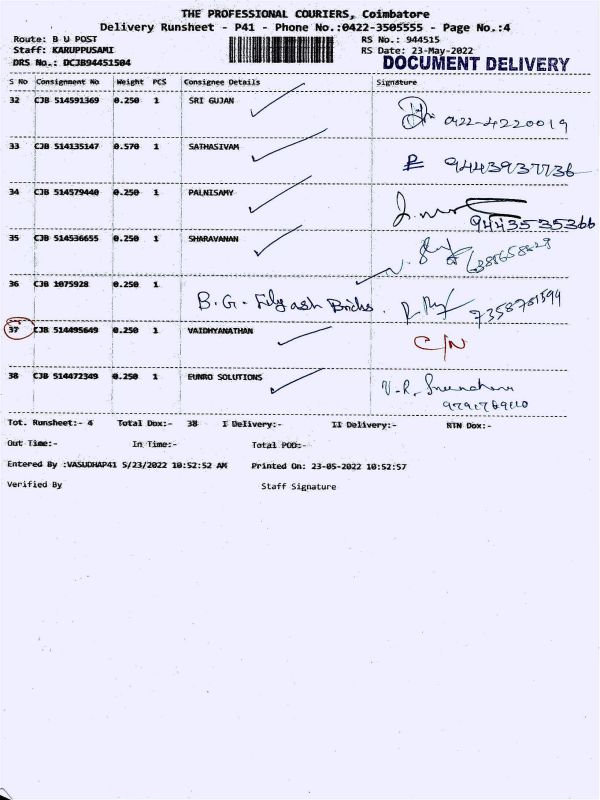 THE PROFESSIONAL COURIERS, Coimbatore
Delivery Runsheet - P41 - Phone No.:0422-3505555 - Page No.:4
Route: B U POST RS No.: 944515
Staff: KARUPPUSAMI RS Date: 23-May-2022
DRS No.: DCJB94451504 DOCUMENT DELIVERY
S No Consignment No Weight PCS Consignee Details Signature
32 CJB 514591369 0.250 1 SRI GUJAN 0422-4220019
33 CJB 514135147 0.570 1 SATHASIVAM 9443937736
34 CJB 514579440 0.250 1 PALNISAMY 9443535366
35 CJB 514536655 0.250 1 SHARAVANAN
36 CJB 1075928 0.250 1 B.G. Flyash Bricks. 7358701594
37 CJB 514495649 0.250 1 VAIDHYANATHAN C/N
38 CJB 514472349 0.250 1 EUNRO SOLUTIONS V.R.
Tot. Runsheet:- 4 Total Dox:- 38 I Delivery:- II Delivery:- RTN Dox:-
Out Time:- In Time:- Total POD:-
Entered By :VASUDHAP41 5/23/2022 10:52:52 AM Printed On: 23-05-2022 10:52:57
Verified By Staff Signature